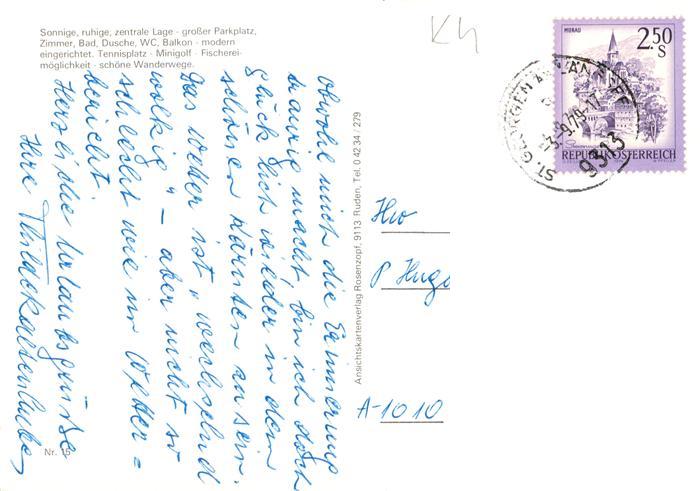 Sonnige, ruhige, zentrale Lage - großer Parkplatz,
Zimmer, Bad, Dusche, WC, Balkon - modern
eingerichtet. Tennisplatz - Minigolf - Fischerei-
möglichkeit - schöne Wanderwege.
Obwohl mich die Erinnerung
traurig macht, bin ich doch
glücklich wieder in dem
schönen Kärnten zu sein.
Das Wetter ist "wechselnd
wolkig" – aber nicht so
schlecht wie im Wetter=
bericht
Herzliche Urlaubsgrüße
Ihre
Nr. 15
Ansichtskartenverlag Rosenzopf, 9113 Ruden, Tel. 0 42 34 / 279
MURAU
2.50
S
REPUBLIK ÖSTERREICH
ST. GEORGEN A. LÄNGSEE
-3.-9.79-17
9313
P Hugo
A-1010